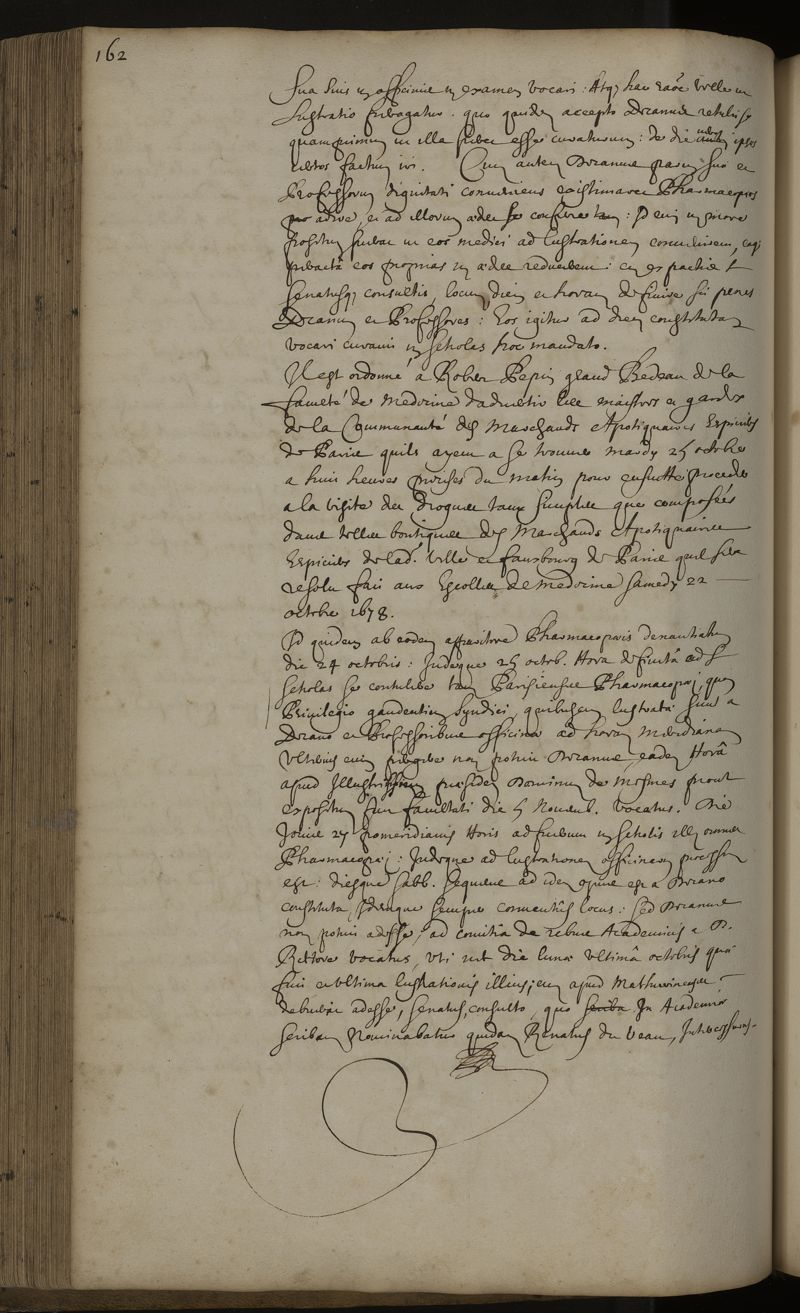 162
sua suis in officiniis in examen vocari : Atq; hac raõe velle in
lustratio subrogatur . quo quidem accepto Decanus retulisse
quamprimum in illa scribi esse curaturum : de die ipsos
certos factum iri . Cum autem Decanus parum suæ et
Professorum dignitati conveniens existimaret Pharmacopæos
adire, et ad illorum ædes se conferre : Id enim in more
positum in eos medici ad lustrationem convenissent, eaq;
peracta eos proprias in ædes reducebant : et ex pactis et
Senatusq; consultis, locum, diem et horam definire sit penes
Decanum et Professores : Eos igitur ad diem constitutam
vocari curavit in scholas hoc mandato.
Il est ordonné a Robert Pepin grand Bedeau de la
faculté de Medecine d'advertir les maistres et gardes
de la Communauté des Marchands Apotiquaires Espiciers
de Paris quils ayent a se trouver mardy 25 octobre
a huit heures precises du matin pour ensuitte proceder
a la visite des drogues tant simples que composées
dans telles boutiques des Marchands Apotiquaires
Espiciers de lad. ville et fauxbourg de Paris quil sera
resolu fait aux Escolles de Medecine samedy 22
octobre 1678.
Id quidem ab eodem apparitore Pharmacopæis denuntiatum
die 24 octobris : Indeque 25 octob. Hora definitâ ad
scholas se contulere tam Parisienses Pharmacopæi, quam
Privilegio gaudentium Syndici, quibuscum lustratæ sunt a
Decano et Professoribus officinæ ad horam meridianam
ulterius enim progredi non potuit Decanus, eadem Horâ
apud Illustrissimum præsidem Dominum de Mesmes prout
expositum fuit facultati die 5 Novemb. vocatus. Die
Jovis 27 pomeridianis Horis adfuerunt in scholis illi omnes
Pharmacopæi : Indeque ad lustrationem officinarum processum
est : diesque sabb. sequens ad idem opus est a Decano
constituta, Idemque semper conventus locus : sed Decanus
non potuit adesse, ad comitia de rebus Academicis a D.
Rectore vocatus, uti nec die lunæ ultimâ octobris quæ
fuit et ultima lustrationis illius; cum apud Mathurinenses
debuerit adesse, senatus consulto, quo scriba In Academiæ
scribam Nominabatur quidam Renatus du Veau,